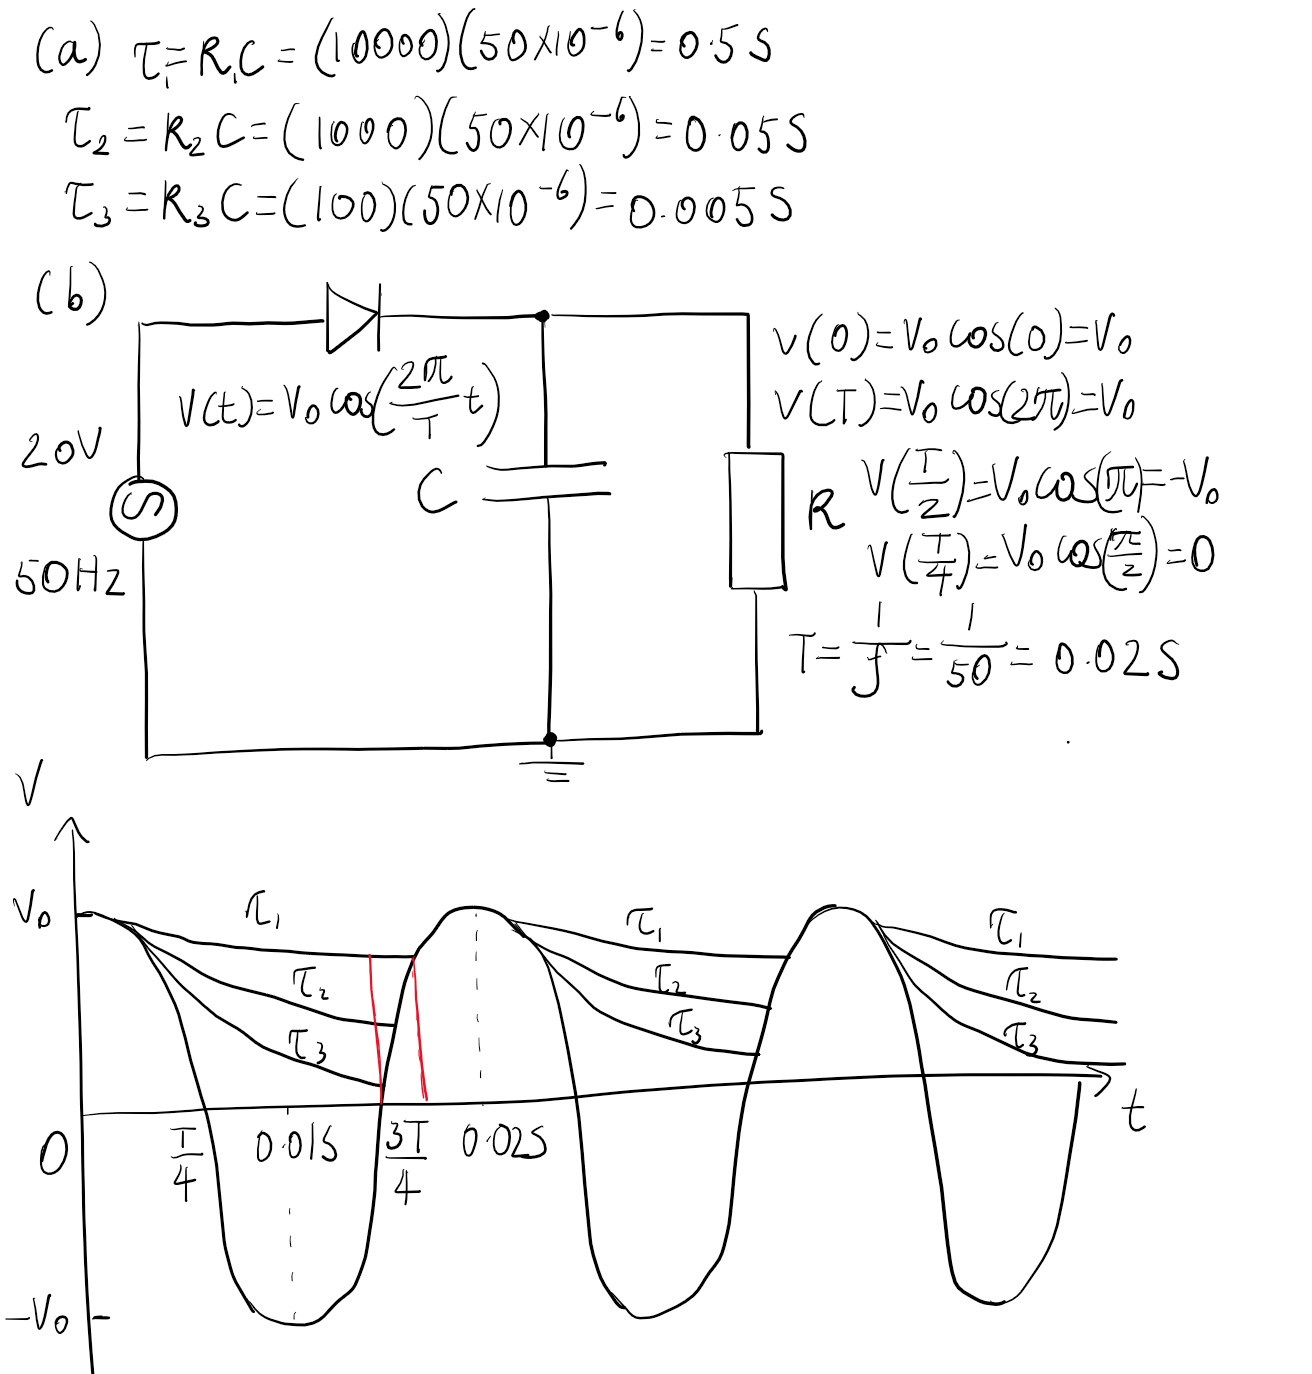 (a) τ₁ = R₁C = (10000)(50×10⁻⁶) = 0.5 S
τ₂ = R₂C = (1000)(50×10⁻⁶) = 0.05 S
τ₃ = R₃C = (100)(50×10⁻⁶) = 0.005 S
(b)
V(t) = V₀ cos(2π/T t)
20V
50Hz
C
R
v(0) = V₀ cos(0) = V₀
v(T) = V₀ cos(2π) = V₀
V(T/2) = V₀ cos(π) = -V₀
V(T/4) = V₀ cos(π/2) = 0
T = 1/f = 1/50 = 0.02 S
V
V₀
τ₁ τ₁ τ₁
τ₂ τ₂ τ₂
τ₃ τ₃ τ₃
0 T/4 0.01S 3T/4 0.02S t
-V₀